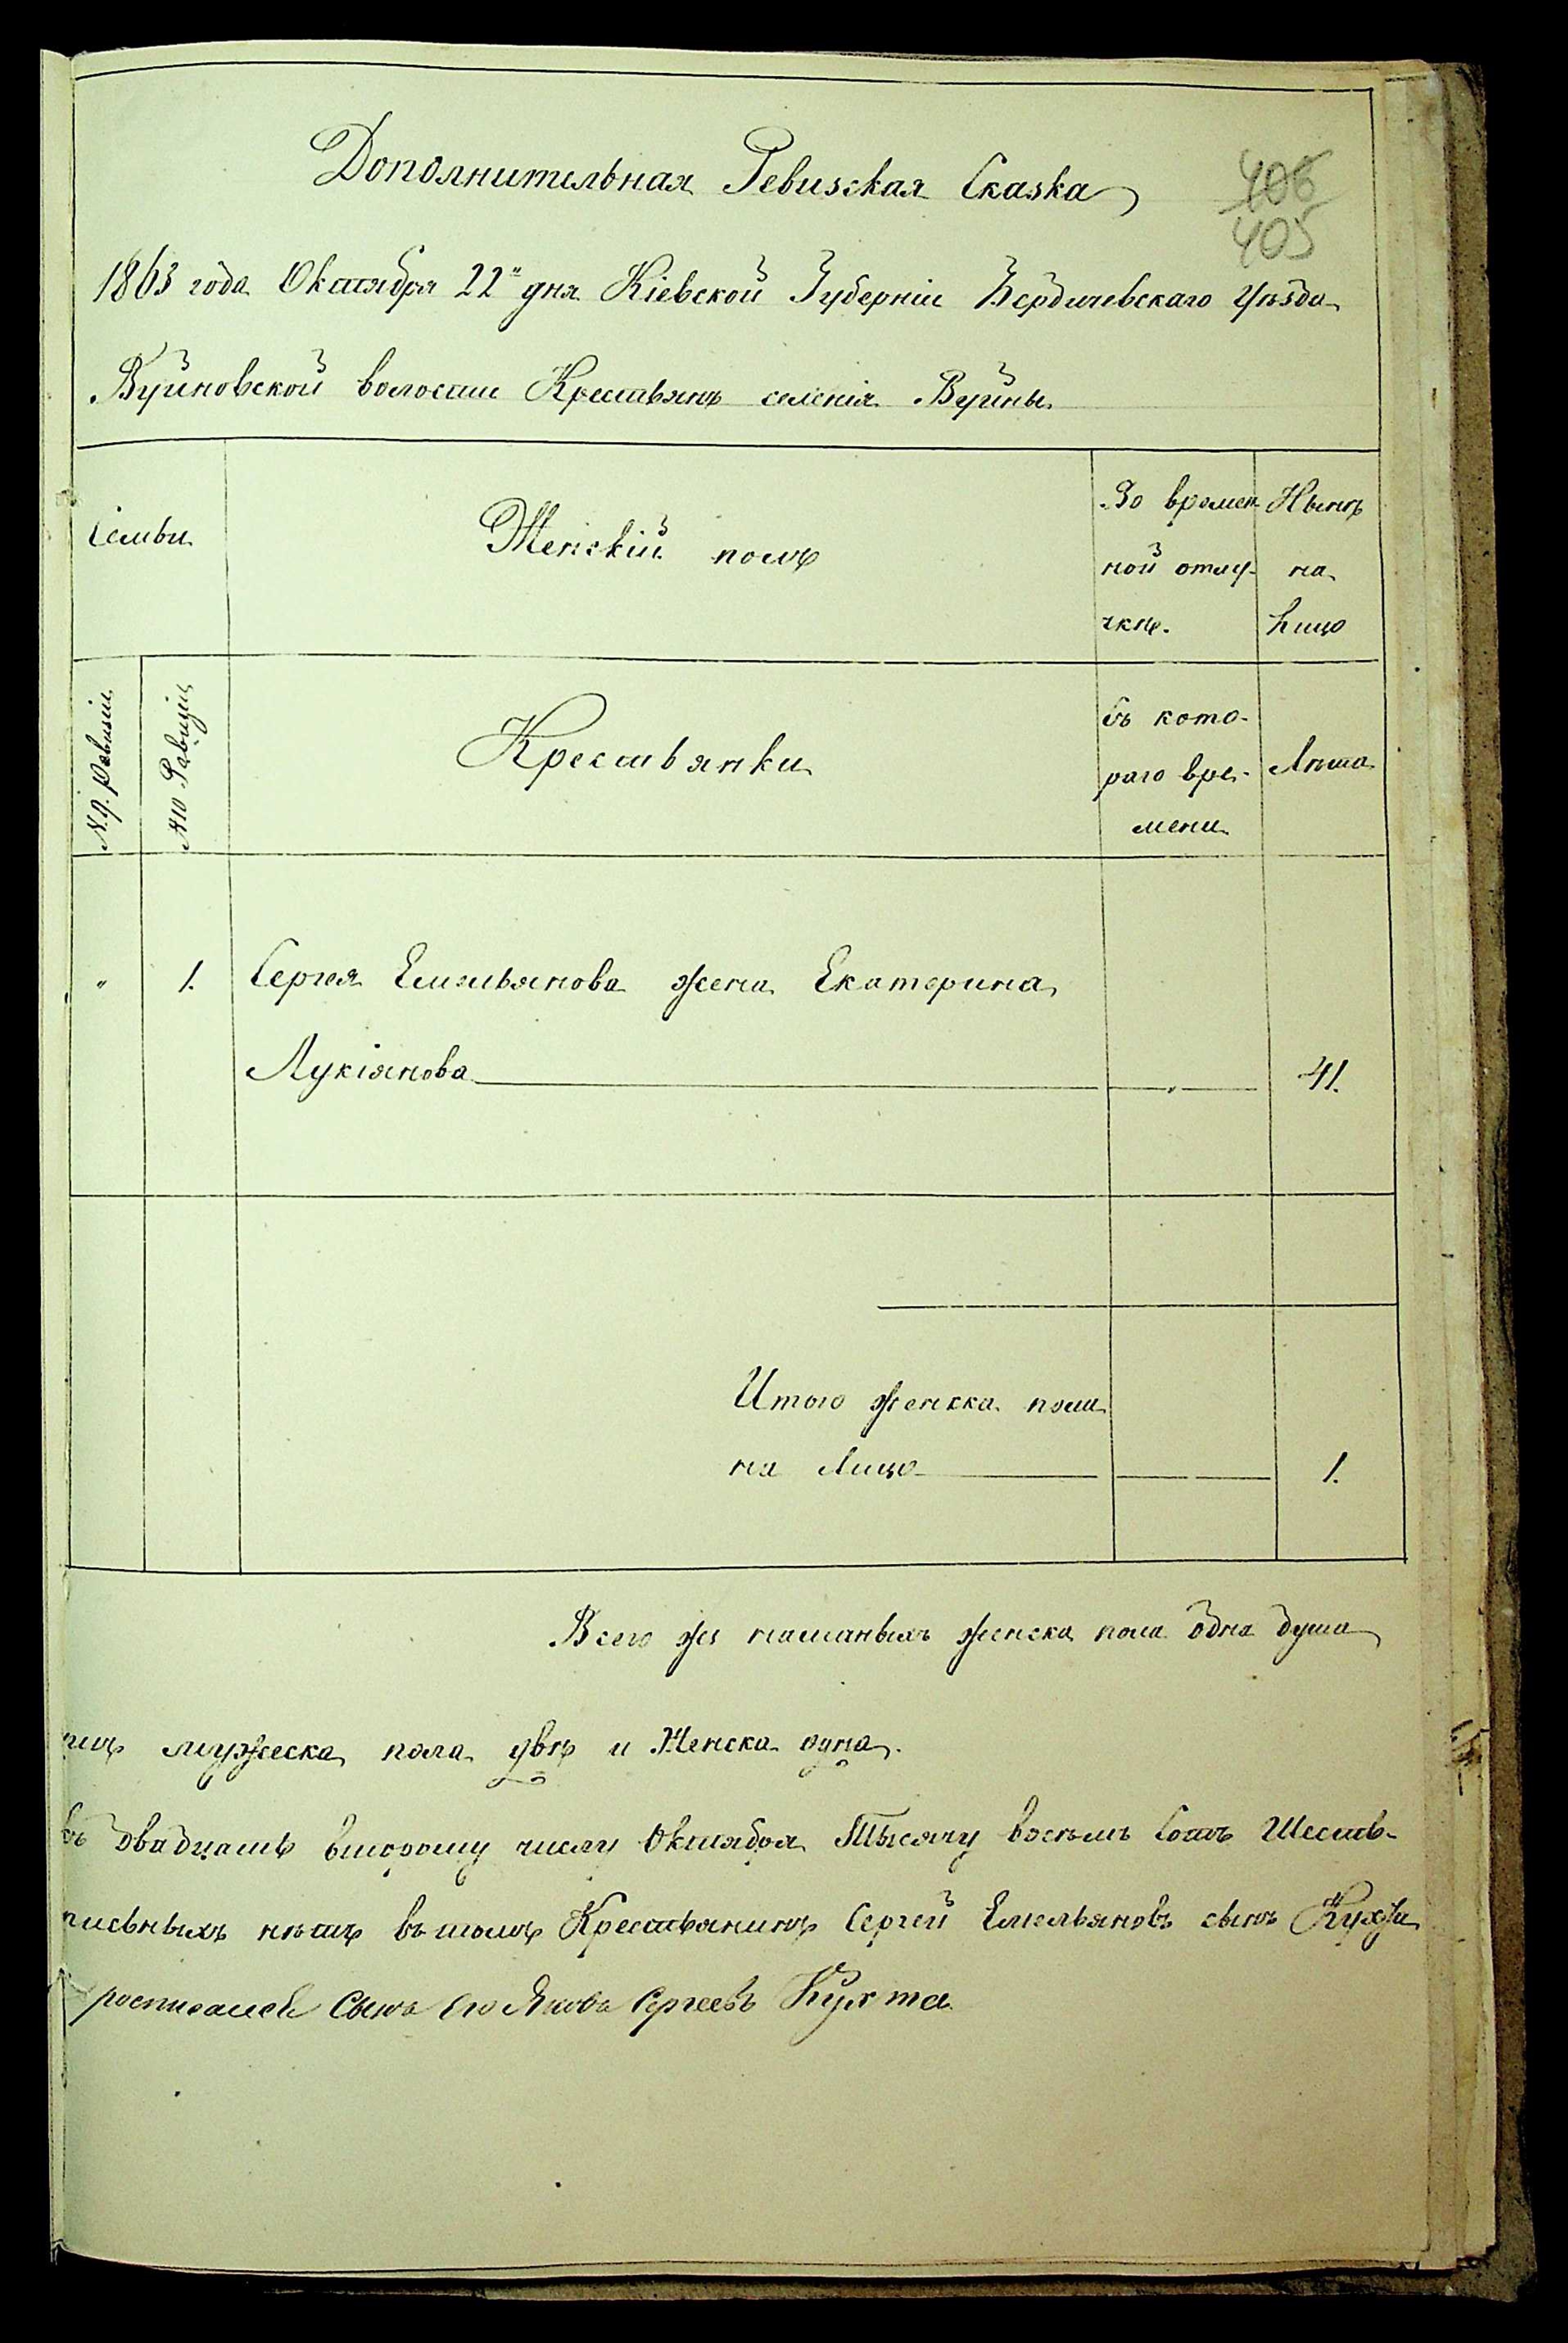 Дополнительная Ревизская Сказка
406
405
1863 года Октября 22" дня Кіевской Губерніи Бердичевскаго Уѣзда
Вуйновской волости Крестьянъ селенія Вуйны
Семьи
Женскій полъ
Во времен-
ной отлу-
чкѣ.
Нынѣ
на
Лицо
№ 9. Ревизіи
№ 10 Ревизіи
Крестьянки
Съ кото-
раго вре-
мени
Лѣта
" 1. Сергея Емельянова жена Екатерина
Лукіянова 41.
Итого женска пола
на Лицо 1.
Всего же женска пола Одна душа
мужеска пола двѣ и Женска одна.
въ двадцать второму числу Октября Тысячу восемь Сотъ Шесть-
нѣтъ въ томъ Крестьянинъ Сергей Емельяновъ сынъ Кухта
росписался Сынъ его Яковъ Сергеевъ Кухта